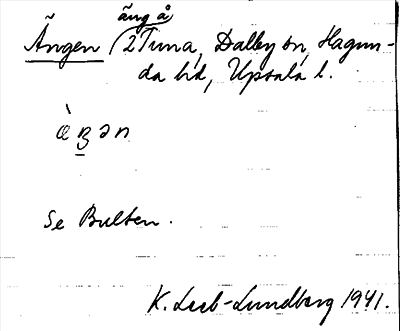 äng å
Ängen (2Tuna, Dalby sn, Hagun-
da hd, Upsala l.
Se Bulten.
K. Leeb-Lundberg 1941.